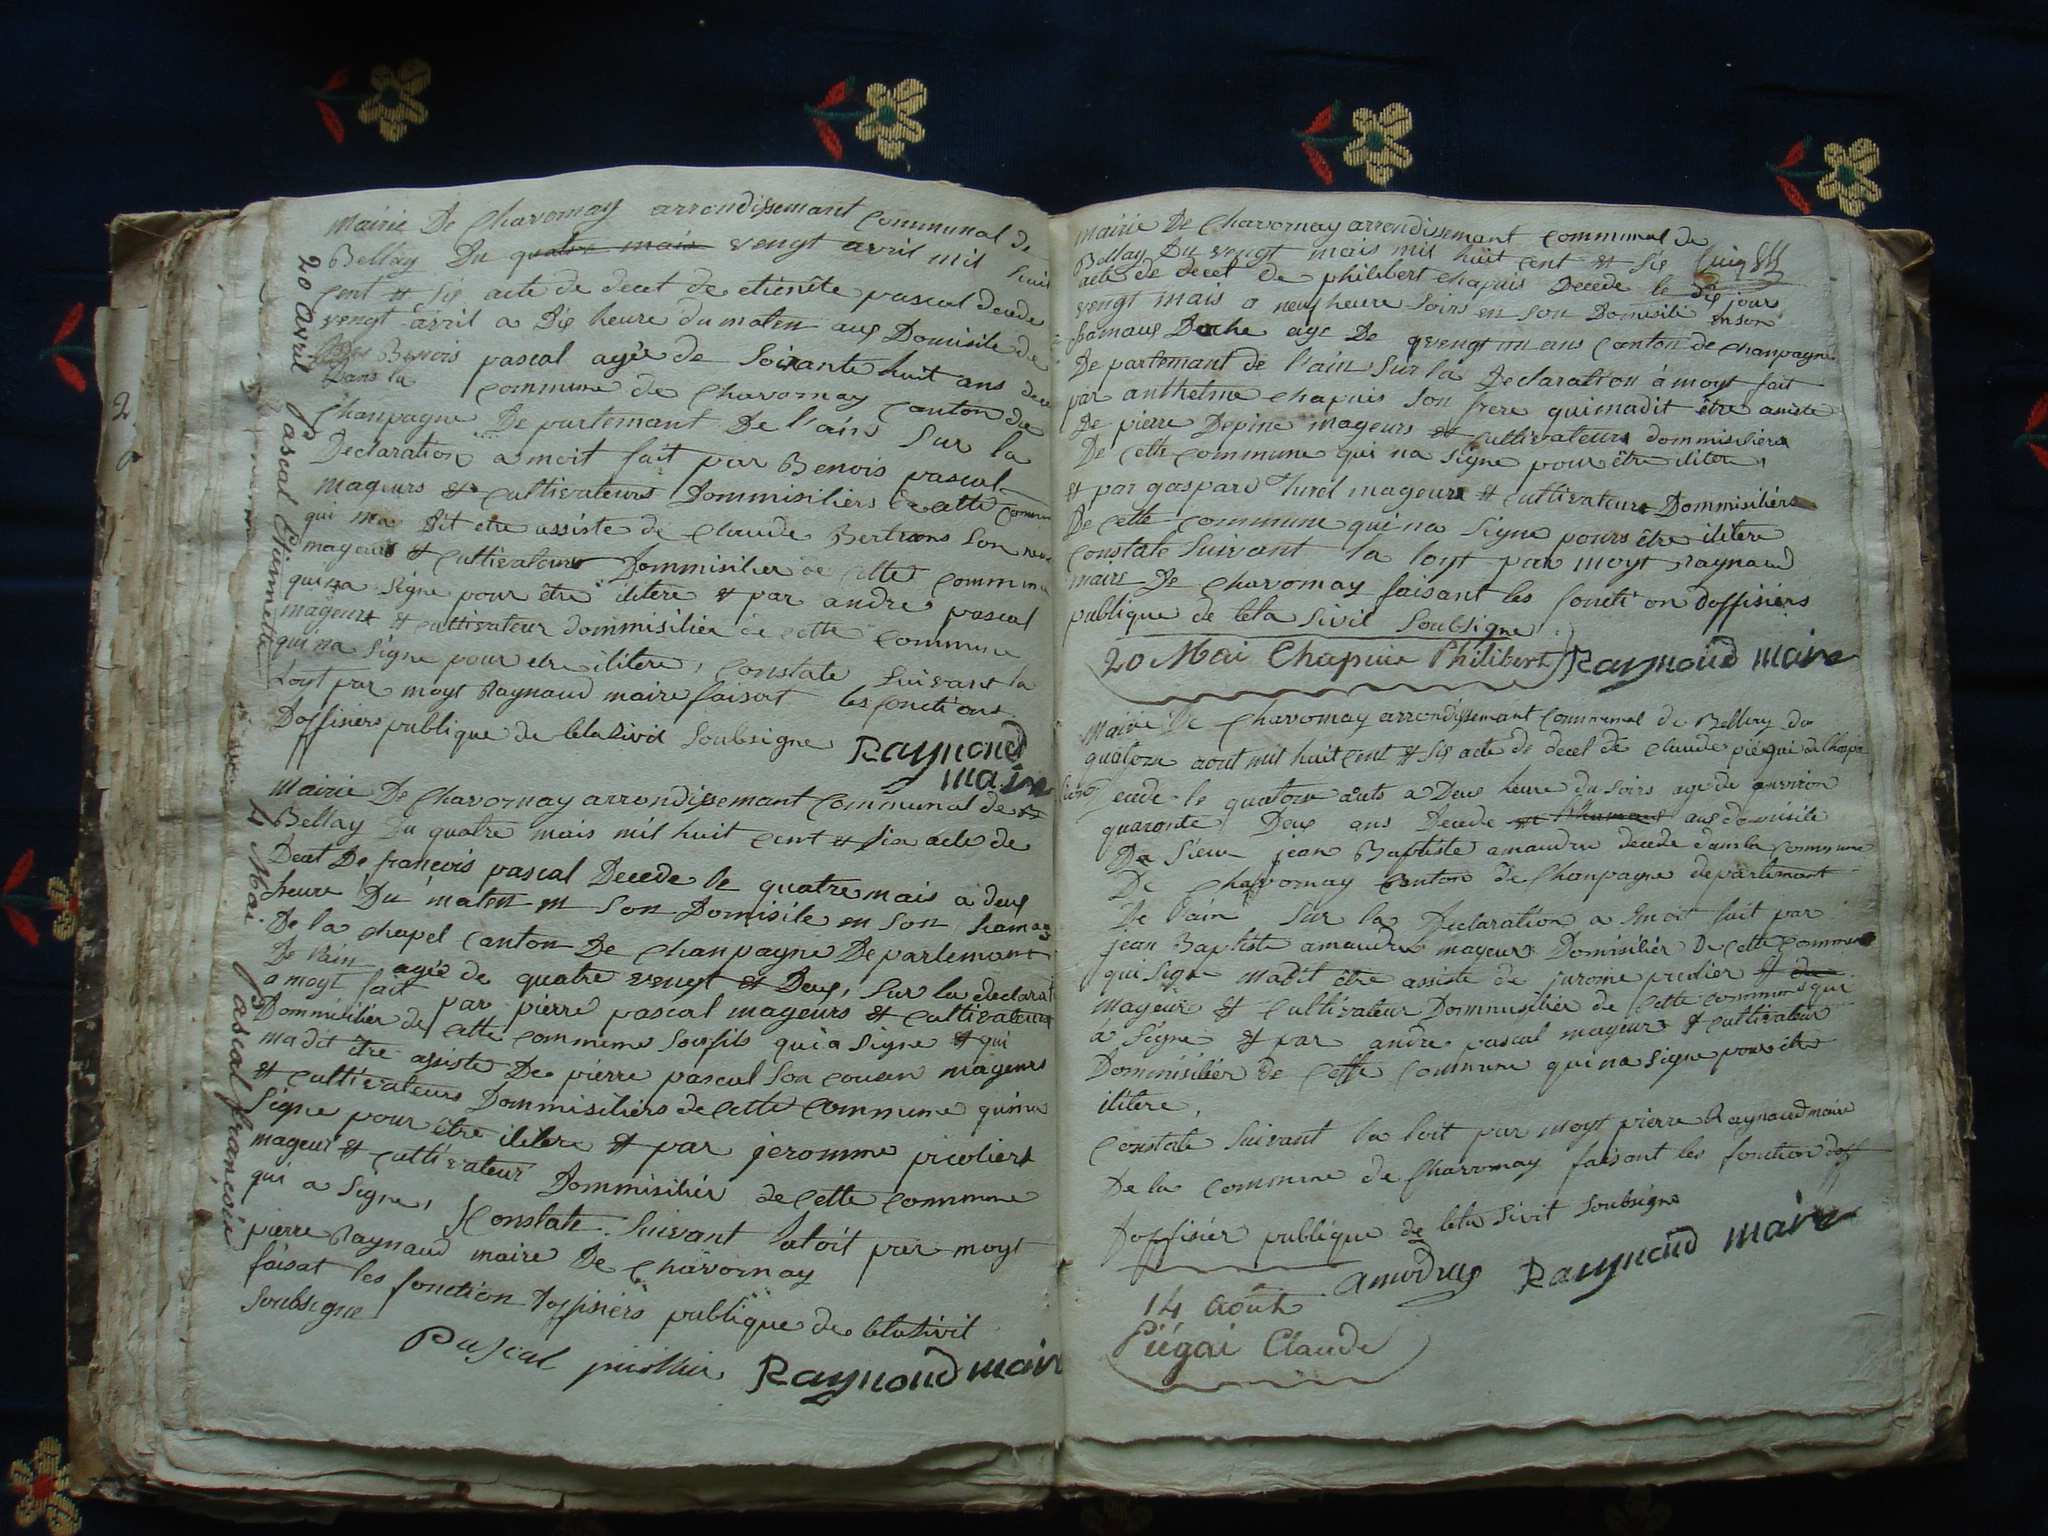 mairie De Chavornay arrondissemant Communal de
Bellay Du quatre mais vengt avril mil huit
Cent et Sis acte de decet de etienete pascal decede
vengt avril a Dis heure du maten aus Domisile de
Benois pascal agée de Soixante huit ans
Dans la commune de Chavornay Canton de
Chanpagne De partemant De l'ains Sur la
Declaration a moit fait par Benois pascal
mageurs et Cultivateurs Dommisiliers de cette Commune
qui ma Dit etre assiste de Claude Bertrans Son
mageurs et Cultivateurs Dommisilier de Cette Commune
qui na Signe pour être ilitere et par andre pascal
mageurs et cultivateur dommisilier de cette Commune
qui na Signe pour etre ilitere, Constate Suivant la
Loyt par moyt Raynaud maire faisat les fonctions
Doffisiers publique de leta sivil Soubsigne Raymond
maire
20 avril Pascal Etiennette
mairie De Chavornay arrondissemant Communal de
Bellay Du quatre mais mil huit Cent et Six acte de
Decet De francois pascal Decede le quatre mais a deus
heure Du maten en Son Domisile en Son hamaus
De la Chapel Canton De Chanpagne De partemant
De l'ain agée de quatre vengt et Deus, Sur la declarat
a moyt fait par pierre pascal mageurs et Cultivateurs
Dommisilier de Cette Commune Son fils qui a Signe et qui
ma dit être assiste De pierre pascal Son Cousin mageurs
et Cultivateurs Dommisiliers de Cette Commune qui na
Signe pour être ilitere et par jeromme picoliers
mageur et cultivateur Dommisilier de Cette Commune
qui a Signe, Constate Suivant la loit par moyt
pierre Raynaud maire De Chavornay
faisat les fonction Doffisiers publique de leta sivil
Soubsigne
Pascal picollier Raymond maire
4 Mai Pascal François
mairie De Chavornay arrondissemant Communal de
Bellay Du vengt mais mil huit Cent et Sis
acte de decet De philibert Chapuis Decede le dis jour
vengt mais a neuf heure Soirs en Son Domisile en son
hamaus Doche age De vengt un ans Canton de Chanpagne
De partemant de l'ain Sur la Declaration à moyt fait
par anthelme Chapuis Son frere qui madit être asiste
De pierre Depine mageurs et Cultivateurs dommisiliers
De Cette Commune qui na Signe pour être ilitere,
et par gaspard Turel mageurs et Cultivateurs Dommisiliers
De Cette Commune qui na Signe pours être ilitere
Constate Suivant la loyt par moyt Raynaud
maire De Chavornay faisant les foncti on doffisiers
publique de leta Sivil Soubsigne
20 Mai Chapuis Philibert Raymond maire
Mairie De Chavornay arrondissemant Communal de Bellay du
quatorze aout mil huit Cent et Sis acte de decet de Claude piegai de
cede le quatorze aout a Deus heure du Soirs age de anviron
quaronte Deus ans Decede aus domisile
Du Sieur jean Baptiste amaudru decede dans la Commune
De Chavornay Canton de Chanpagne departemant
De l'ain Sur la Declaration a moit fait par
jean Baptiste amaudru mageurs Domisilier De Cette Commune
qui Signe madit être assiste de jurome picolier
mageurs et Cultivateur Dommisilier de Cette Commune qui
a Signe et par andre pascal mageurs et Cultivateur
Dommisilier de Cette Commune qui na Signe pour être
ilitere,
Constate Suivant la loit par moyt pierre Raynaud maire
De la Commune de Chavornay faisant les fonction doff
Doffisier publique de leta Sivit Soubsigne
amodrus Raymond maire
14 Août
Piégai Claude